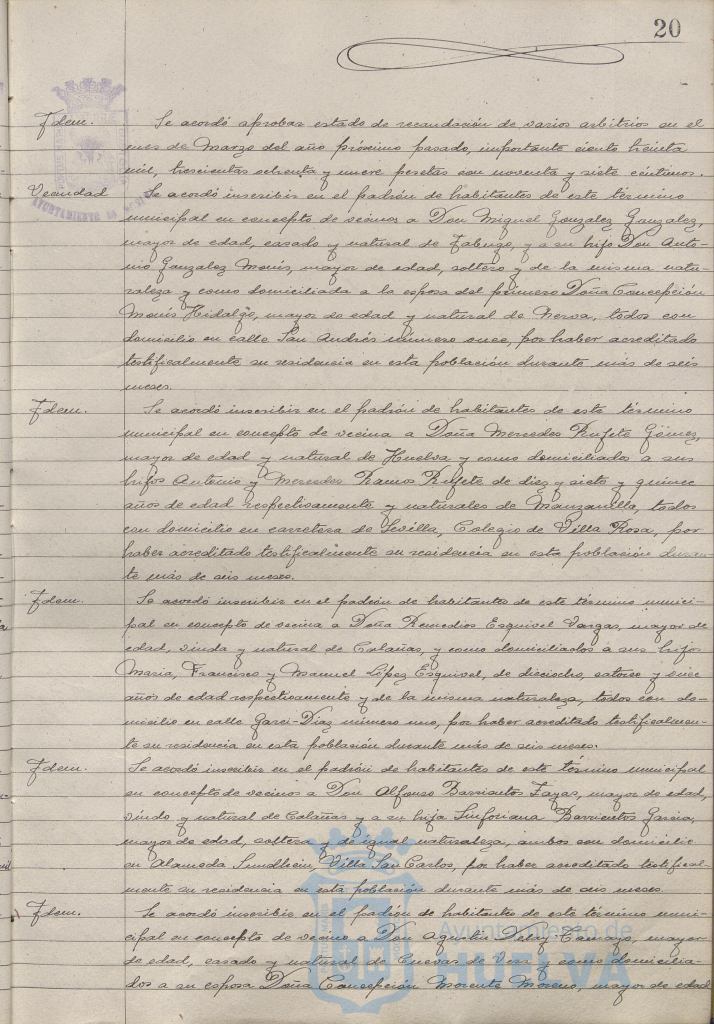 20
Idem. Se acordó aprobar estado de recaudación de varios arbitrios en el
mes de Marzo del año próximo pasado, importante ciento treinta
mil, trescientas ochenta y nueve pesetas con noventa y siete céntimos.
Vecindad Se acordó inscribir en el padrón de habitantes de este término
municipal en concepto de vecinos a Don Miguel Gonzalez Gonzalez,
mayor de edad, casado y natural de Jabugo, y a su hijo Don Anto-
nio Gonzalez Monís, mayor de edad, soltero y de la misma natu-
raleza y como domiciliada a la esposa del primero Doña Concepción
Monís Hidalgo, mayor de edad y natural de Nerva, todos con
domicilio en calle San Andrés número once, por haber acreditado
testificalmente su residencia en esta población durante más de seis
meses.
Idem. Se acordó inscribir en el padrón de habitantes de este término
municipal en concepto de vecina a Doña Mercedes Rufete Gómez,
mayor de edad y natural de Huelva y como domiciliados a sus
hijos Antonio y Mercedes Ramos Rufete de diez y siete y quince
años de edad respectivamente y naturales de Manzanilla, todos
con domicilio en carretera de Sevilla, Colegio de Villa Rosa, por
haber acreditado testificalmente su residencia en esta población duran-
te más de seis meses.
Idem. Se acordó inscribir en el padrón de habitantes de este término munici-
pal en concepto de vecina a Doña Remedios Esquivel Vargas, mayor de
edad, viuda y natural de Calañas, y como domiciliados a sus hijos
Maria, Francisco y Manuel López Esquivel, de dieciocho, catorce y once
años de edad respectivamente y de la misma naturaleza, todos con do-
micilio en calle Garci-Diaz número uno, por haber acreditado testificalmen-
te su residencia en esta población durante más de seis meses.
Idem. Se acordó inscribir en el padrón de habitantes de este término municipal
en concepto de vecinos a Don Alfonso Barrientos Zayas, mayor de edad,
viudo y natural de Calañas y a su hija Sinforiana Barrientos Garcia,
mayor de edad, soltera y de igual naturaleza, ambos con domicilio
en Alameda Sundheim, Villa San Carlos, por haber acreditado testifical-
mente su residencia en esta población durante más de seis meses.
Idem. Se acordó inscribir en el padrón de habitantes de este término muni-
cipal en concepto de vecino a Don Agustín Camayo, mayor
de edad, casado y natural de Cuevas de Vera y como domicilia-
dos a su esposa Doña Concepción Morente Moreno, mayor de edad
AYUNTAMIENTO DE
Ayuntamiento de
HUELVA